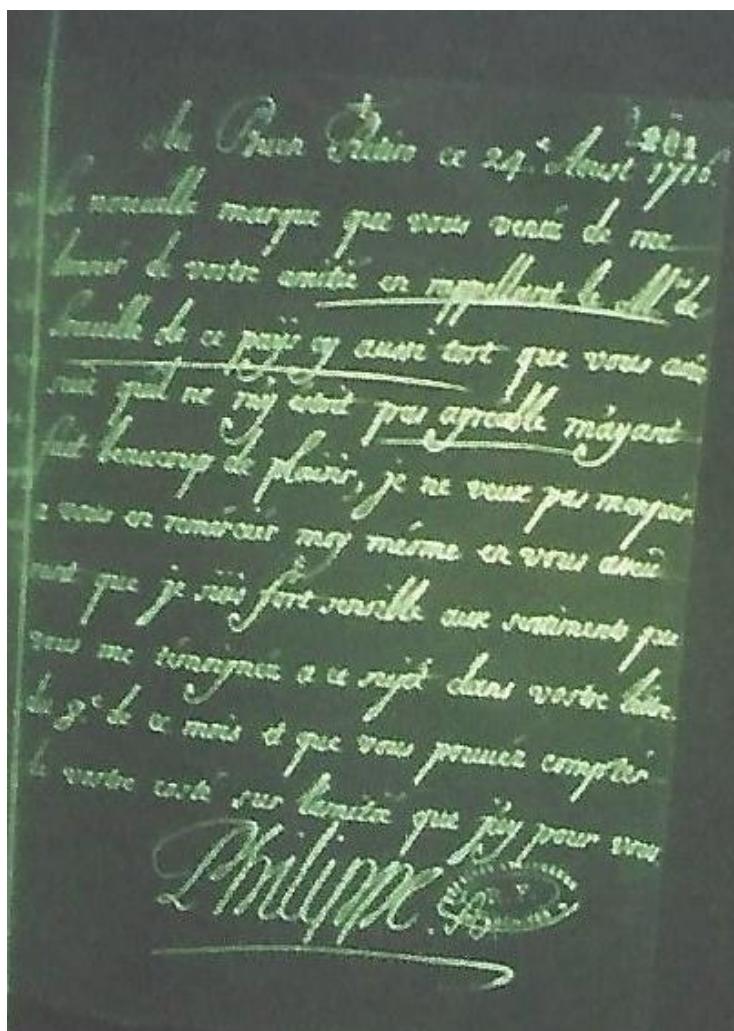 Au Buen Retiro ce 24.e Aoust 1716.
La nouuelle marque que vous venéz de me
donnér de vostre amitié en rappellant le M.is de
Louuille de ce païs cy aussi tost que vous avéz
quil ne m'y estoit pas agreable m'ayant
fait beaucoup de plaisir, je ne veux pas manquér
a vous en remércier moy méme en vous asseü
rant que je suis fort sensible aux sentiments que
vous me témoignéz a ce sujet dans vostre lettre
du 9.e de ce mois et que vous pouuéz comptér
de vostre costé sur lamitié que j'ay pour vous
Philippe.